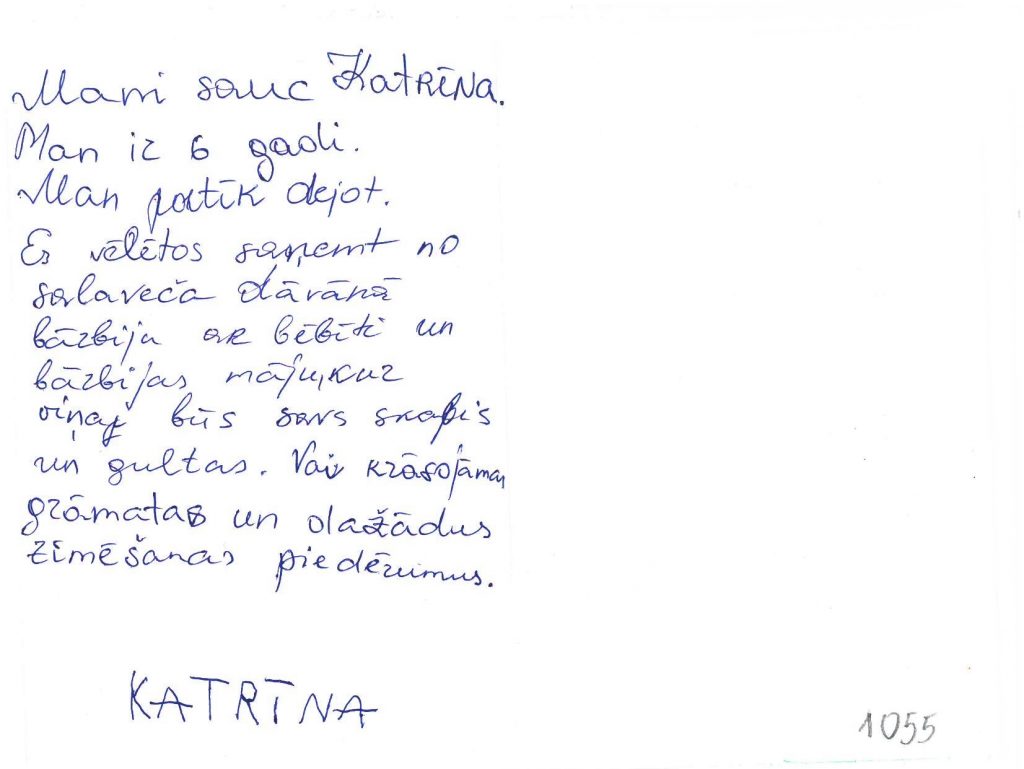 Mani sauc Katrīna.
Man ir 6 gadi.
Man patīk dejot.
Es vēlētos saņemt no
salaveča dāvānā
bārbiju ar bēbīti un
bārbijas māju, kur
viņai būs savs skapis
un gultas. Vai krāsojamas
grāmatas un dažādus
zīmēšanas piedērumus.
KATRĪNA
1055